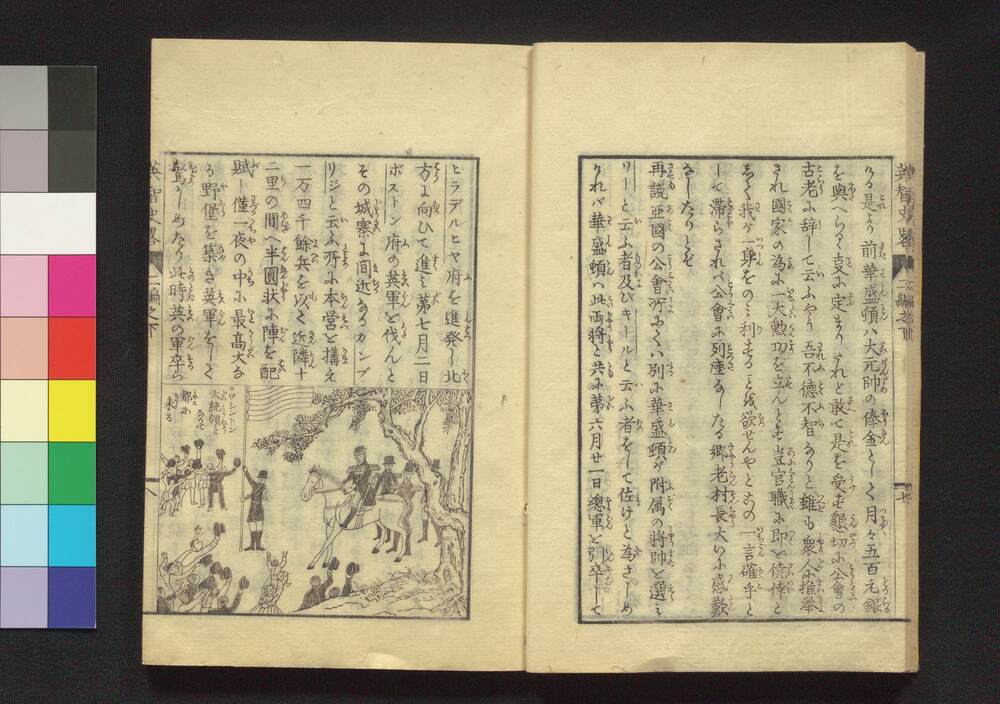 ける是より前華盛頓ハ大元帥の俸金として月々五百元銀
を與へらるゝ支に定まりけれど敢て是を受ず懇切に公會の
古老に辞して云ふやう吾不徳不智なりと雖も衆人に推举
され國家の為に一大勲功を立んとす豈官職に即き僥倖と
して我が一身をのミ利することを欲せんやと此の一言確乎と
して滞らざれバ公會に列座なしたる郷老村長大ひに感歎
なしたりとぞ
再説亜國の公會所に於ハ列に華盛頓が附属の將帥を選ミ
リーと云ふ者及びキールと云ふ者をして佐けと為さしめ
けれバ華盛頓ハ此両將と共に第六月廿一日總軍を引卒して
ヒラデルヒヤ府を進發し北
方に向ひて進ミ第七月二日
ボストン府の英軍を伐んと
その城寨に間近なるカンブ
リジと云ふ所に本営を搆え
一万四千餘兵を以て近隣十
二里の間へ半圓状に陣を配
賦し僅一夜の中に最高大な
る野堡を築き英軍をして
驚かしめたり此時英の軍卒ら
○ワシントン
大統領と
なつて
都に
来る
英智史略 二編之下